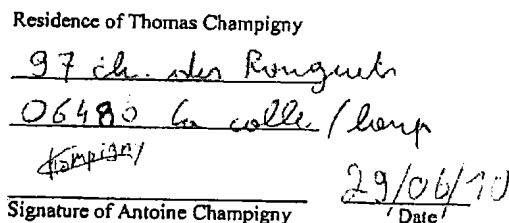 Residence of Thomas Champigny
97 ch. des Rouguets
06480 la colle / loup
Champigny
29/06/10
Signature of Antoine Champigny
Date